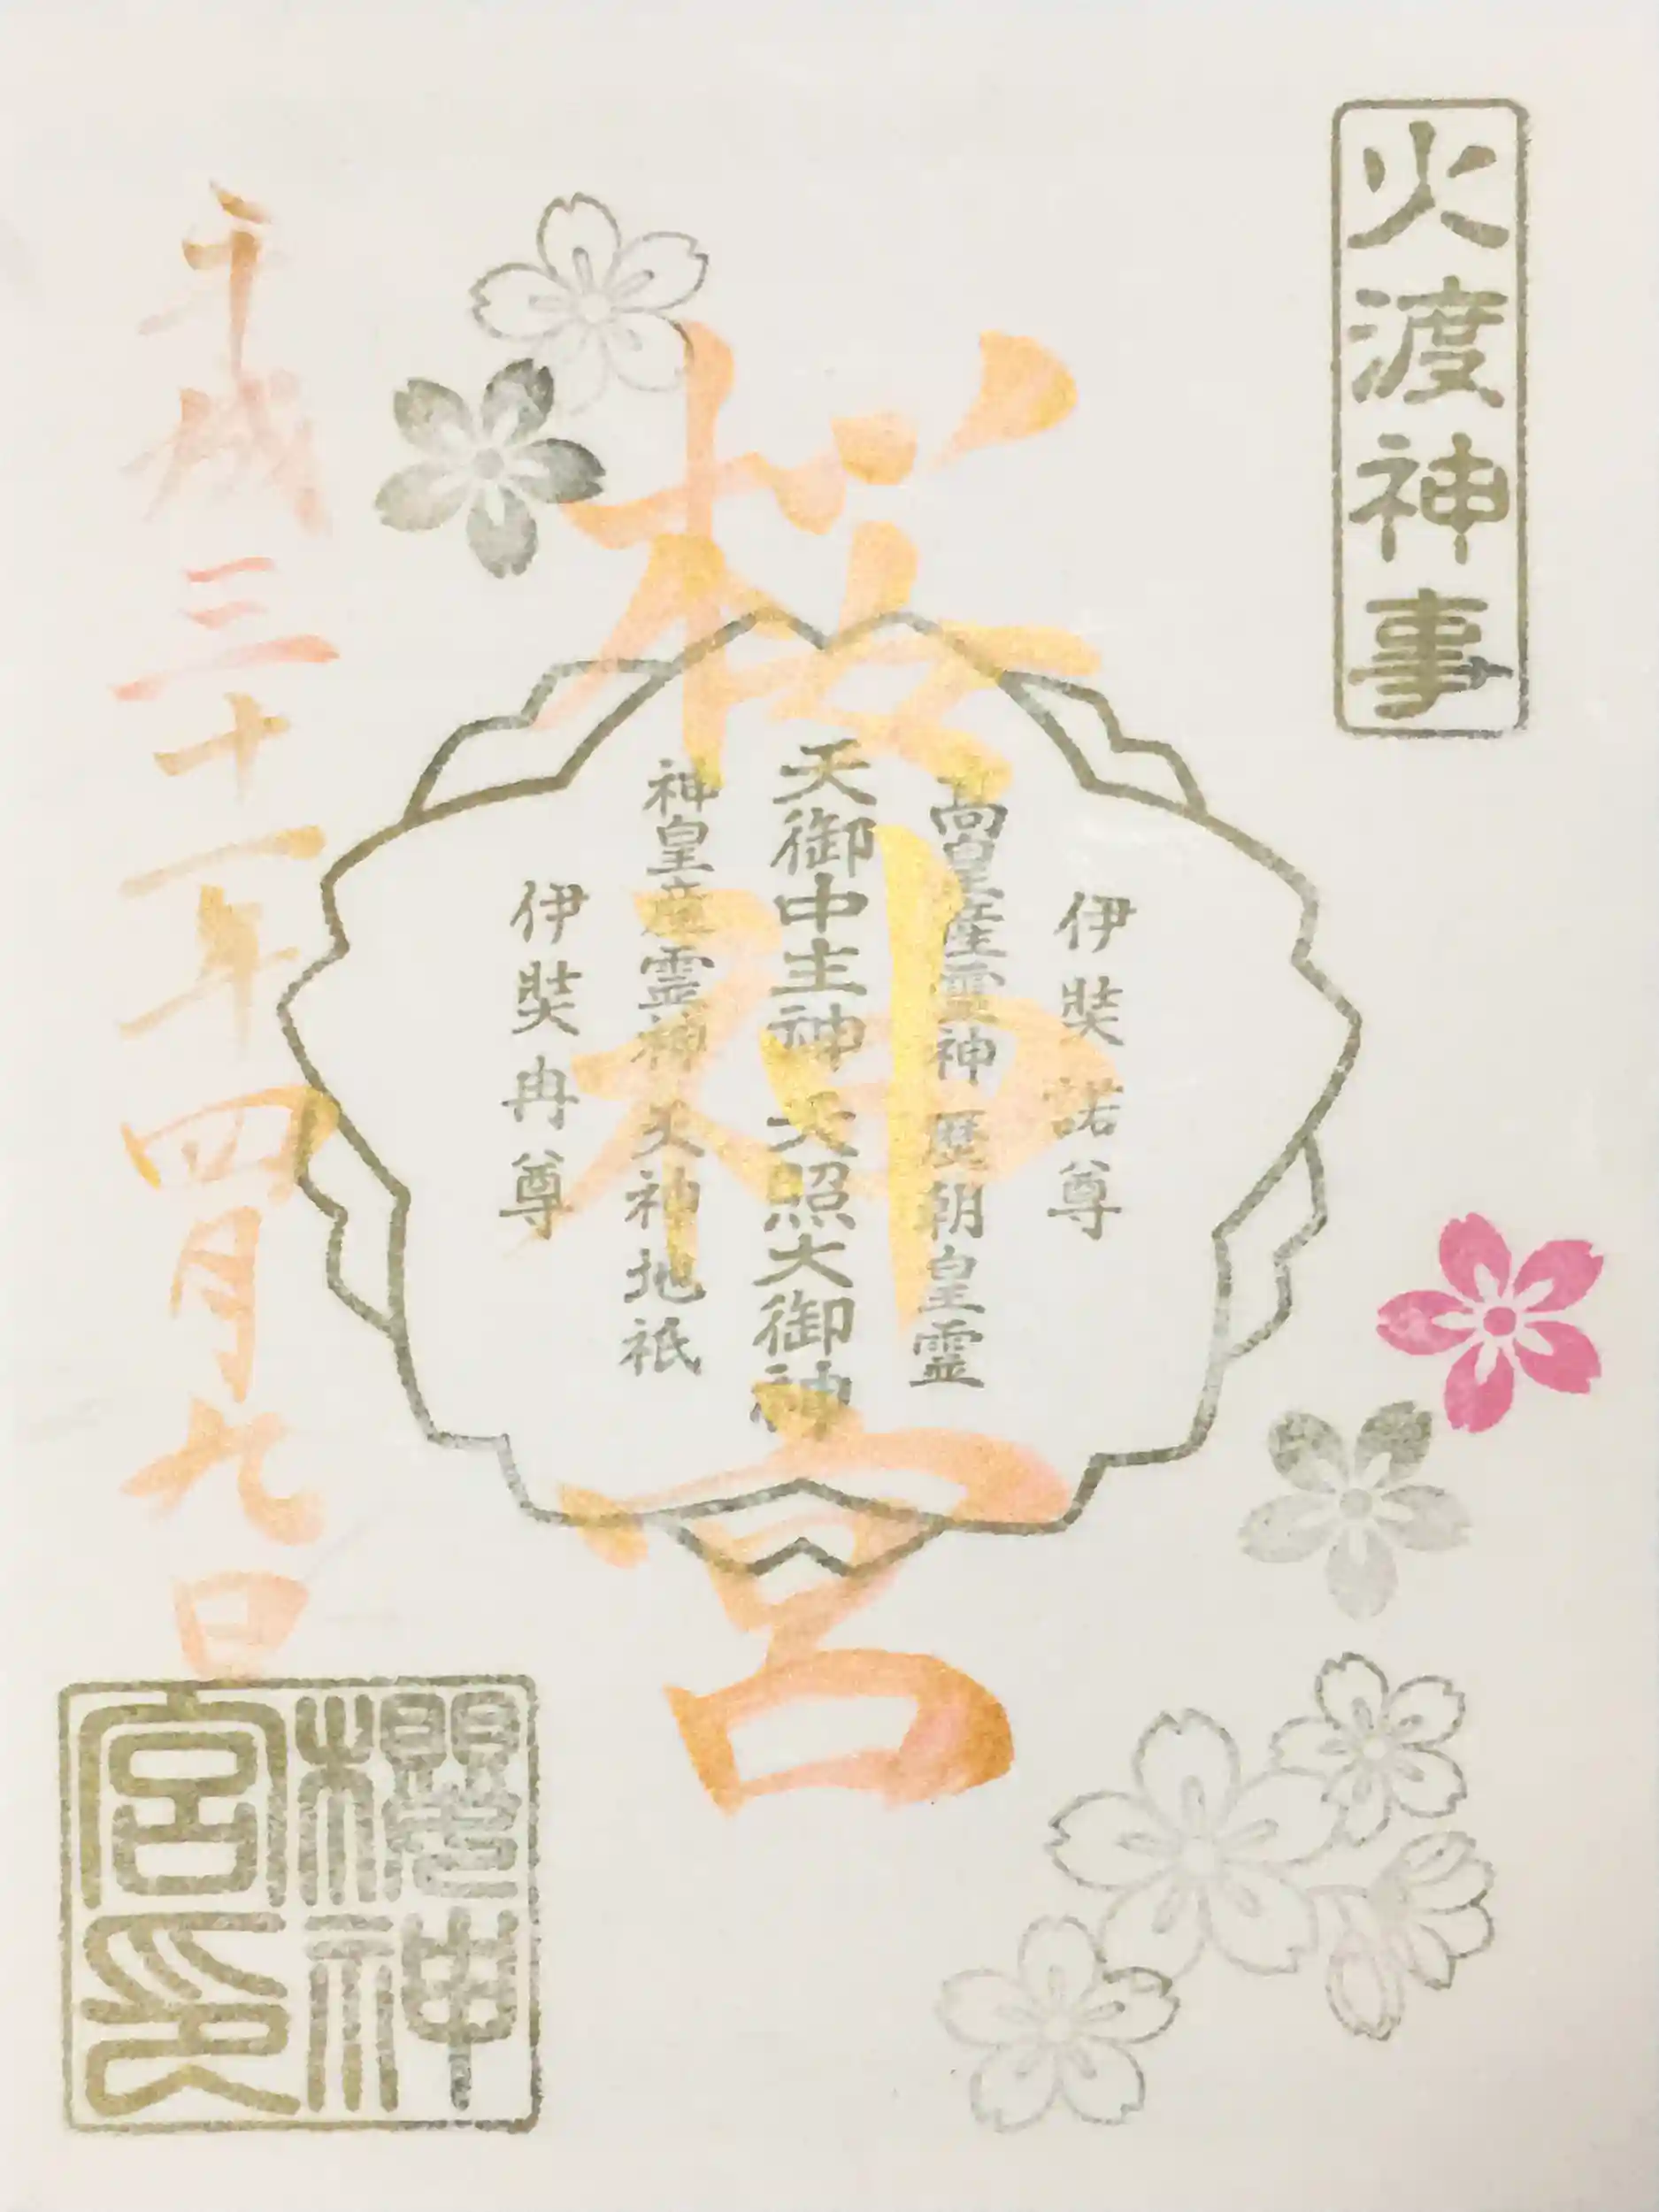 火渡神事
桜神宮
伊弉諾尊
高皇産霊神 歴朝皇霊
天御中主神 天照大御神
神皇産霊神 天神地祇
伊弉冉尊
平成三十一年四月九日
櫻神
宮印